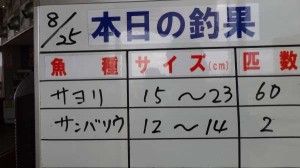 8/25 本日の釣果
魚種 サイズ(cm) 匹数
サヨリ 15〜23 60
サンバソウ 12〜14 2